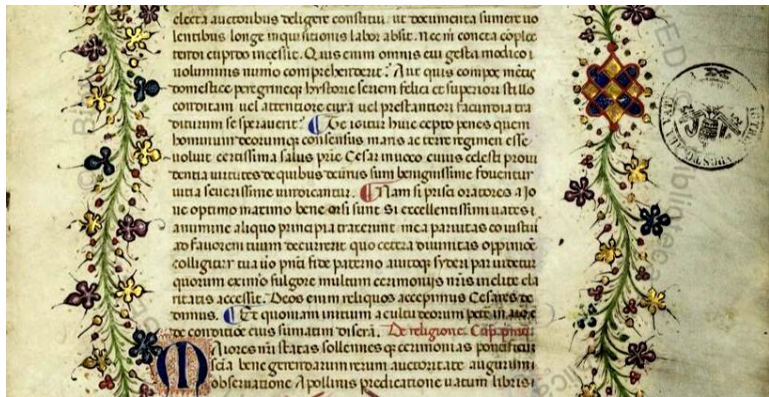 electa auctoribus deligere constitui. ut documenta sumere uo
lentibus longe inquisitionis labor absit. Nec mi concta cōplec
tendi cupido incessit. Quis enim omnis eui gesta modico i
uoluminis numo comprehenderit? Aut quis compos mētis
domestice peregrineqȝ hystorie seriem felici et superiori stillo
conditam uel attentiore cura uel prestantiori facundia tra
diturum se sperauerit? Te igitur huic cepto penes quem
hominum deorumqȝ consensus maris ac terre regimen esse
uoluit certissima salus prīe Cesar inuoco cuius celesti proui
dentia uirtutes de quibus dcūrus sum benignissime fouentur
uitia seuerissime uindicantur. Nam si prisci oratores a Io
ue optimo maximo bene orsi sunt Si excellentissimi uates a
numine aliquo principia traxerunt mea paruitas eo iustiu
ad fauorem tuum decurrerit quo cetera diuinitas oppinioē
colligitur tua
quorum eximio fulgore multum cerimonijs nr̄is inclite cla
ritatis accessit. Deos enim reliquos accepimus Cesares de
dimus. Et quoniam initium a cultu deorum petere in aīo ē
de conditiōe eius sumatim diserā. De religione. Cap. primū
Maiores nr̄i statas sollennesqȝ cerimonias pontificum
scia bene gerendarum rerum auctoritate augurum
obseruatione Apollinis predicatione uatum libris